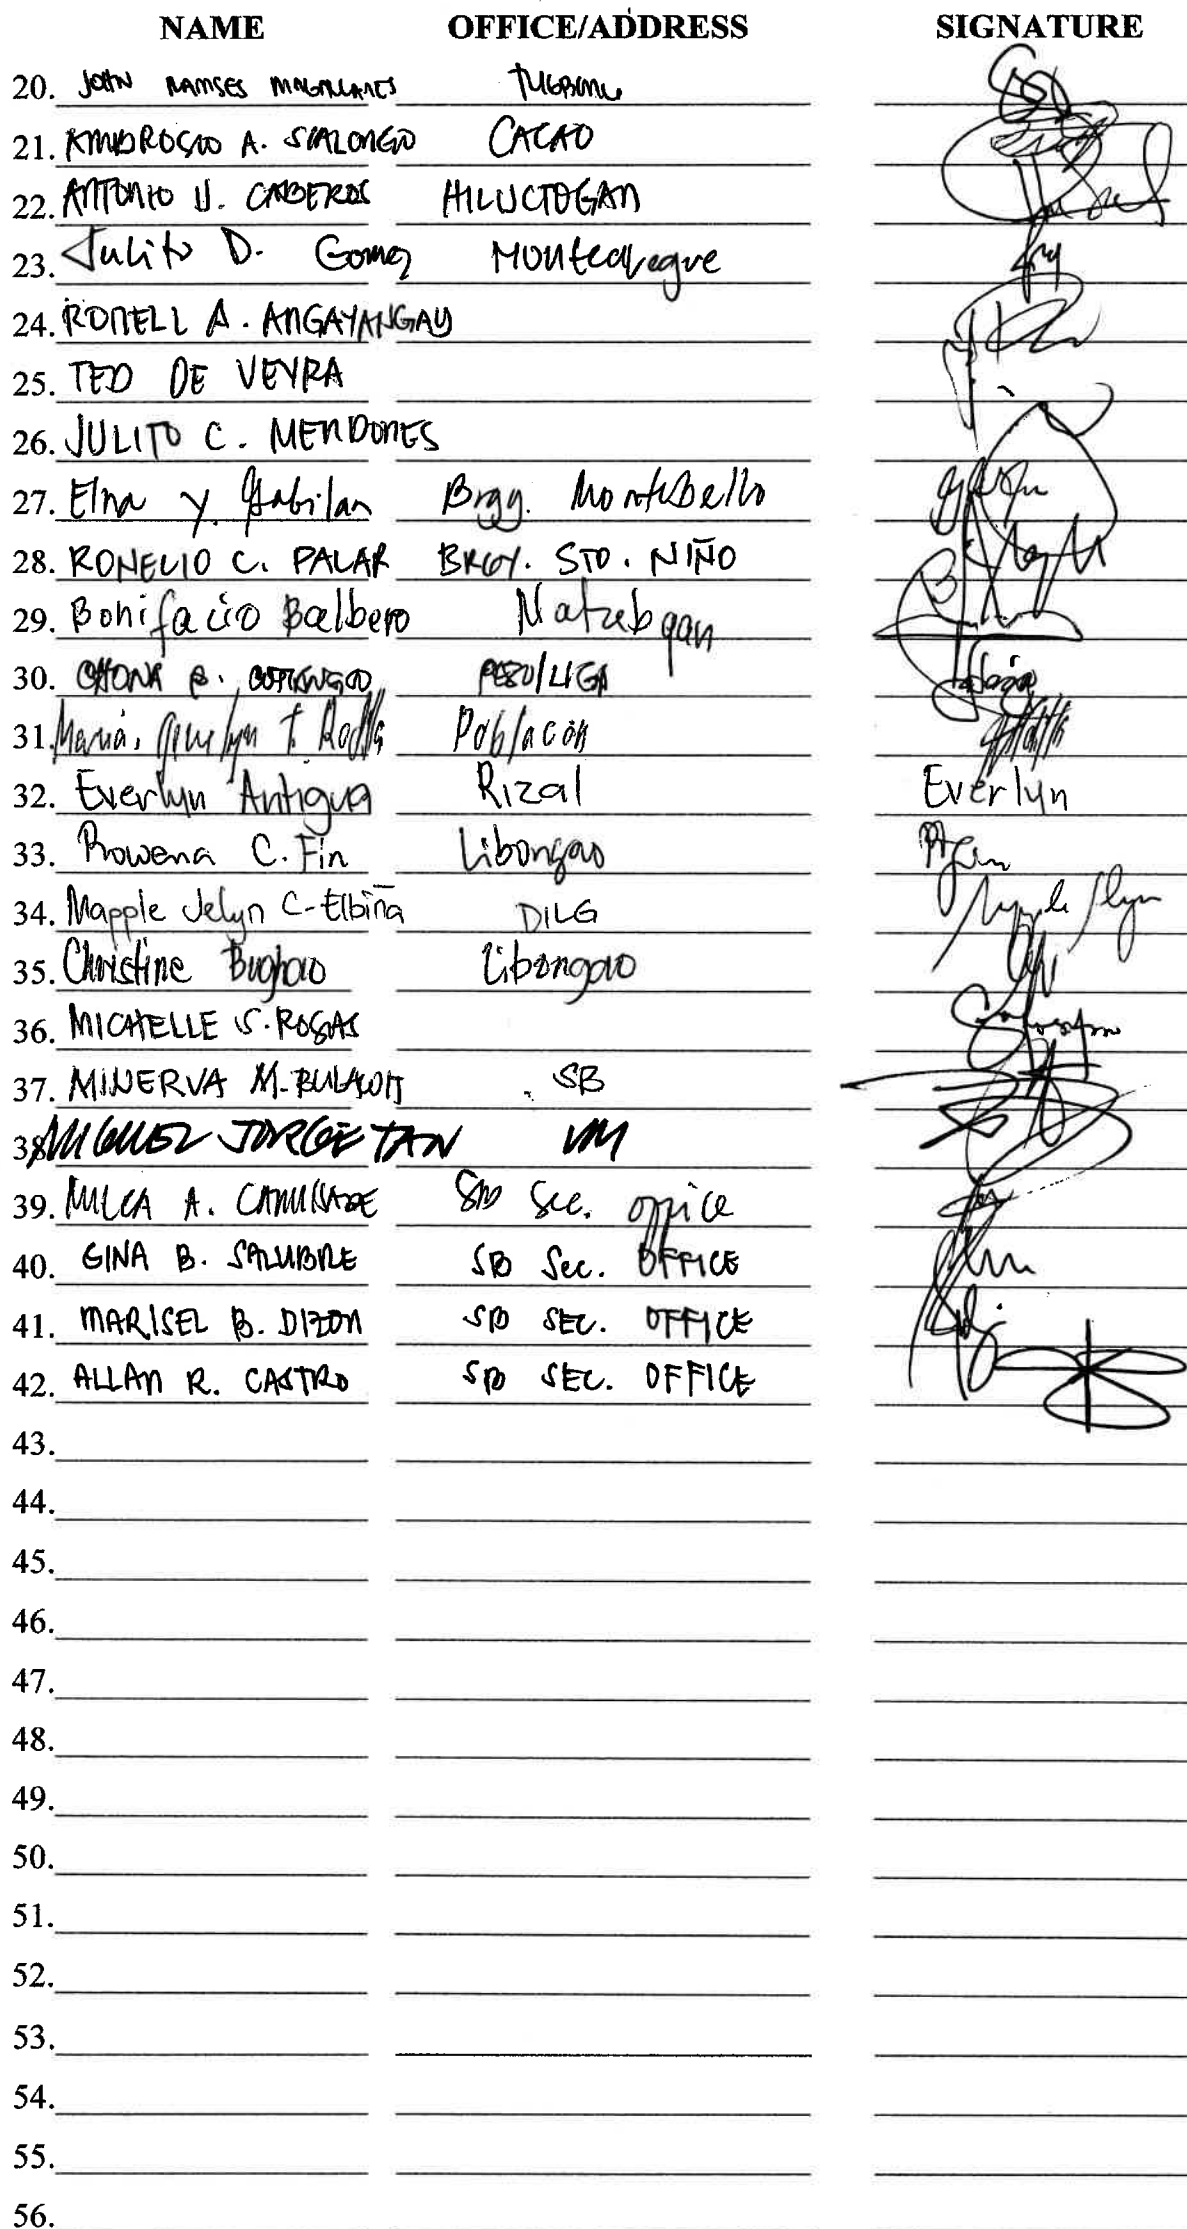 NAME OFFICE/ADDRESS SIGNATURE
20. JOHN RAMSES MAGALLANES TUGBONG
21. AMBROSIO A. SIALONGO CACAO
22. ANTONIO V. CABEROS HILUCTOGAN
23. Julito D. Gomez Montealegre
24. RONELL A. ANGAYANGAY
25. TED DE VEYRA
26. JULITO C. MENDONES
27. Elna Y. Gabilan Brgy. Montebello
28. RONELIO C. PALAR BRGY. STO. NIÑO
29. Bonifacio Balbero Natubgan
30. CHONA
31. Maria T. Población
32. Everlyn Antigua Rizal Everlyn
33. Rowena C. Fin Libongao
34. Mapple Jelyn C-Elbiña DILG
35. Christine Bughao Libongao
36. MICHELLE S. ROSAS
37. MINERVA M. BULAWIT SB
38. MIGUEL JORGE TAN VM
39. A. SB Sec. office
40. GINA B. SALUBRE SB Sec. OFFICE
41. MARISEL B. DIZON SB SEC. OFFICE
42. ALLAN R. CASTRO SB SEC. OFFICE
43.
44.
45.
46.
47.
48.
49.
50.
51.
52.
53.
54.
55.
56.